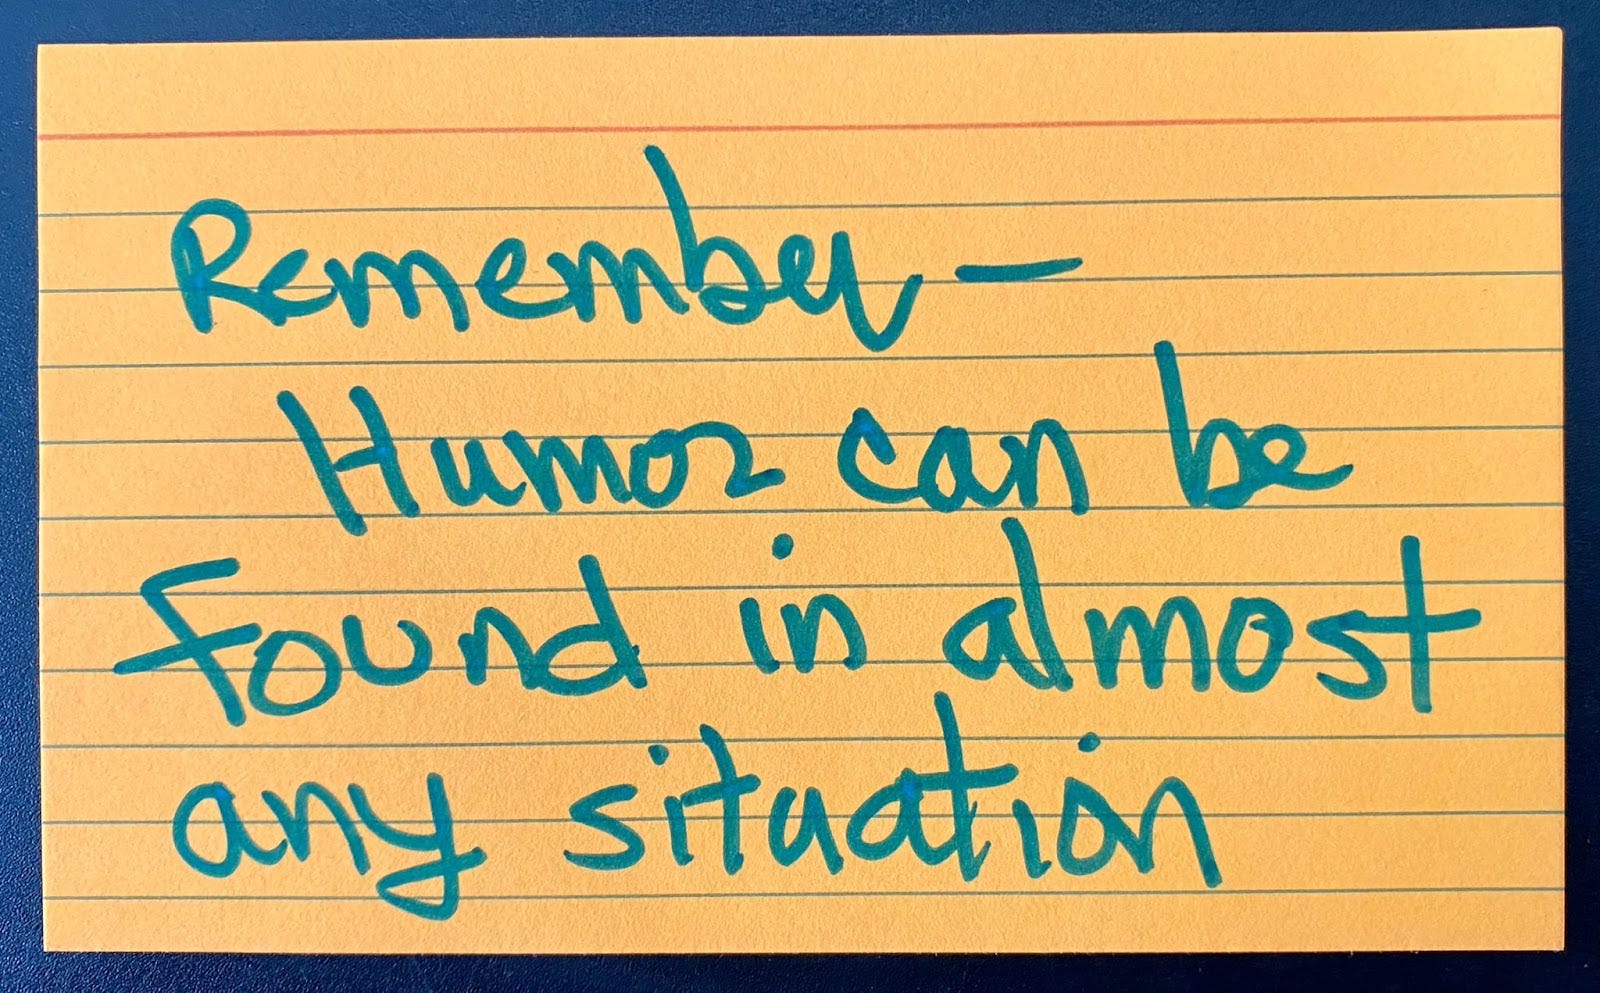 Remember -
Humor can be
Found in almost
any situation